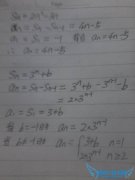 Sn=2n²-3n
an=Sn-Sn-1=4n-5
a1=S1=-1 符合 an=4n-5
∴ an=4n-5
Sn=3ⁿ+b
an=Sn-Sn-1=3ⁿ+b-3ⁿ⁻¹-b
=2×3ⁿ⁻¹
a1=S1=3+b
当 b=-1时 an=2×3ⁿ⁻¹
当 b≠-1时 an={3+b n=1
2×3ⁿ⁻¹ n≥2